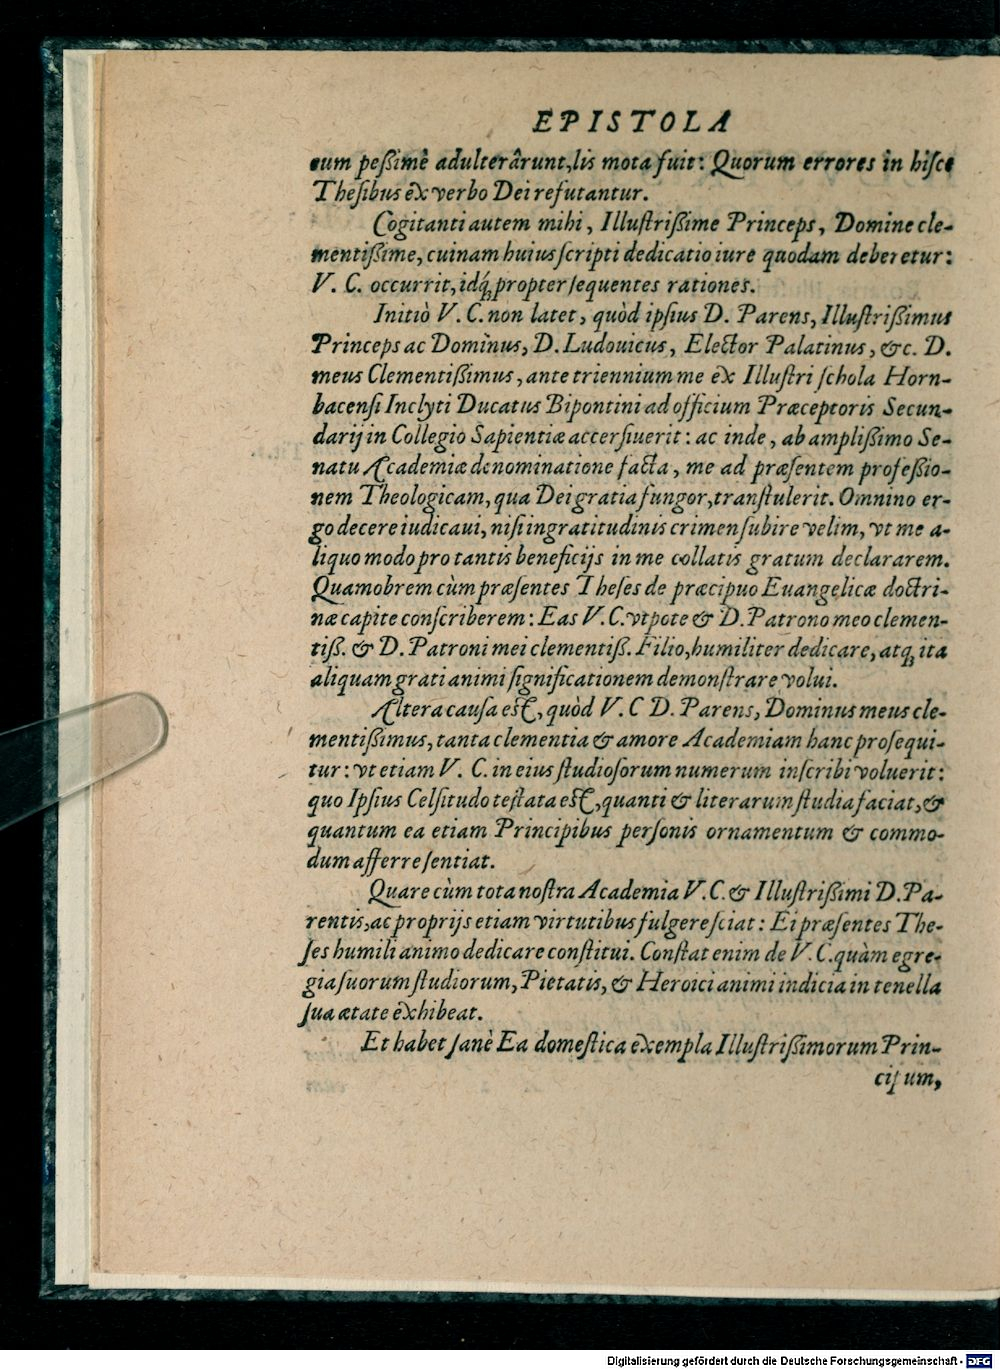 EPISTOLA
eum peßimè adulterârunt, lis mota fuit: Quorum errores in hiſce
Theſibus ex verbo Dei refutantur.
Cogitanti autem mihi, Illuſtrißime Princeps, Domine cle-
mentißime, cuinam huius ſcripti dedicatio iure quodam deberetur:
V. C. occurrit, idq́ꝫ propter ſequentes rationes.
Initiò V. C. non latet, quòd ipſius D. Parens, Illuſtrißimus
Princeps ac Dominus, D. Ludouicus, Elector Palatinus, &c. D.
meus Clementißimus, ante triennium me ex Illuſtri ſchola Horn-
bacenſi Inclyti Ducatus Bipontini ad officium Præceptoris Secun-
darij in Collegio Sapientiæ accerſiuerit: ac inde, ab amplißimo Se-
natu Academiæ denominatione facta, me ad præſentem profeßio-
nem Theologicam, qua Dei gratia fungor, tranſtulerit. Omnino er-
go decere iudicaui, niſi ingratitudinis crimen ſubire velim, vt me a-
liquo modo pro tantis beneficijs in me collatis gratum declararem.
Quamobrem cùm præſentes Theſes de præcipuo Euangelicæ doctri-
næ capite conſcriberem: Eas V. C. vtpote & D. Patrono meo clemen-
tiß. & D. Patroni mei clementiß. Filio, humiliter dedicare, atqꝫ ita
aliquam grati animi ſignificationem demonſtrare volui.
Altera cauſa eſt, quòd V. C D. Parens, Dominus meus cle-
mentißimus, tanta clementia & amore Academiam hanc proſequi-
tur: vt etiam V. C. in eius ſtudioſorum numerum inſcribi voluerit:
quo Ipſius Celſitudo teſtata eſt, quanti & literarum ſtudia faciat, &
quantum ea etiam Principibus perſonis ornamentum & commo-
dum afferre ſentiat.
Quare cùm tota noſtra Academia V. C. & Illuſtrißimi D. Pa-
rentis, ac proprijs etiam virtutibus fulgere ſciat: Ei præſentes The-
ſes humili animo dedicare conſtitui. Conſtat enim de V. C. quàm egre-
gia ſuorum ſtudiorum, Pietatis, & Heroici animi indicia in tenella
ſua ætate exhibeat.
Et habet ſanè Ea domeſtica exempla Illuſtrißimorum Prin-
cipum,
Digitalisierung gefördert durch die Deutsche Forschungsgemeinschaft - DFG